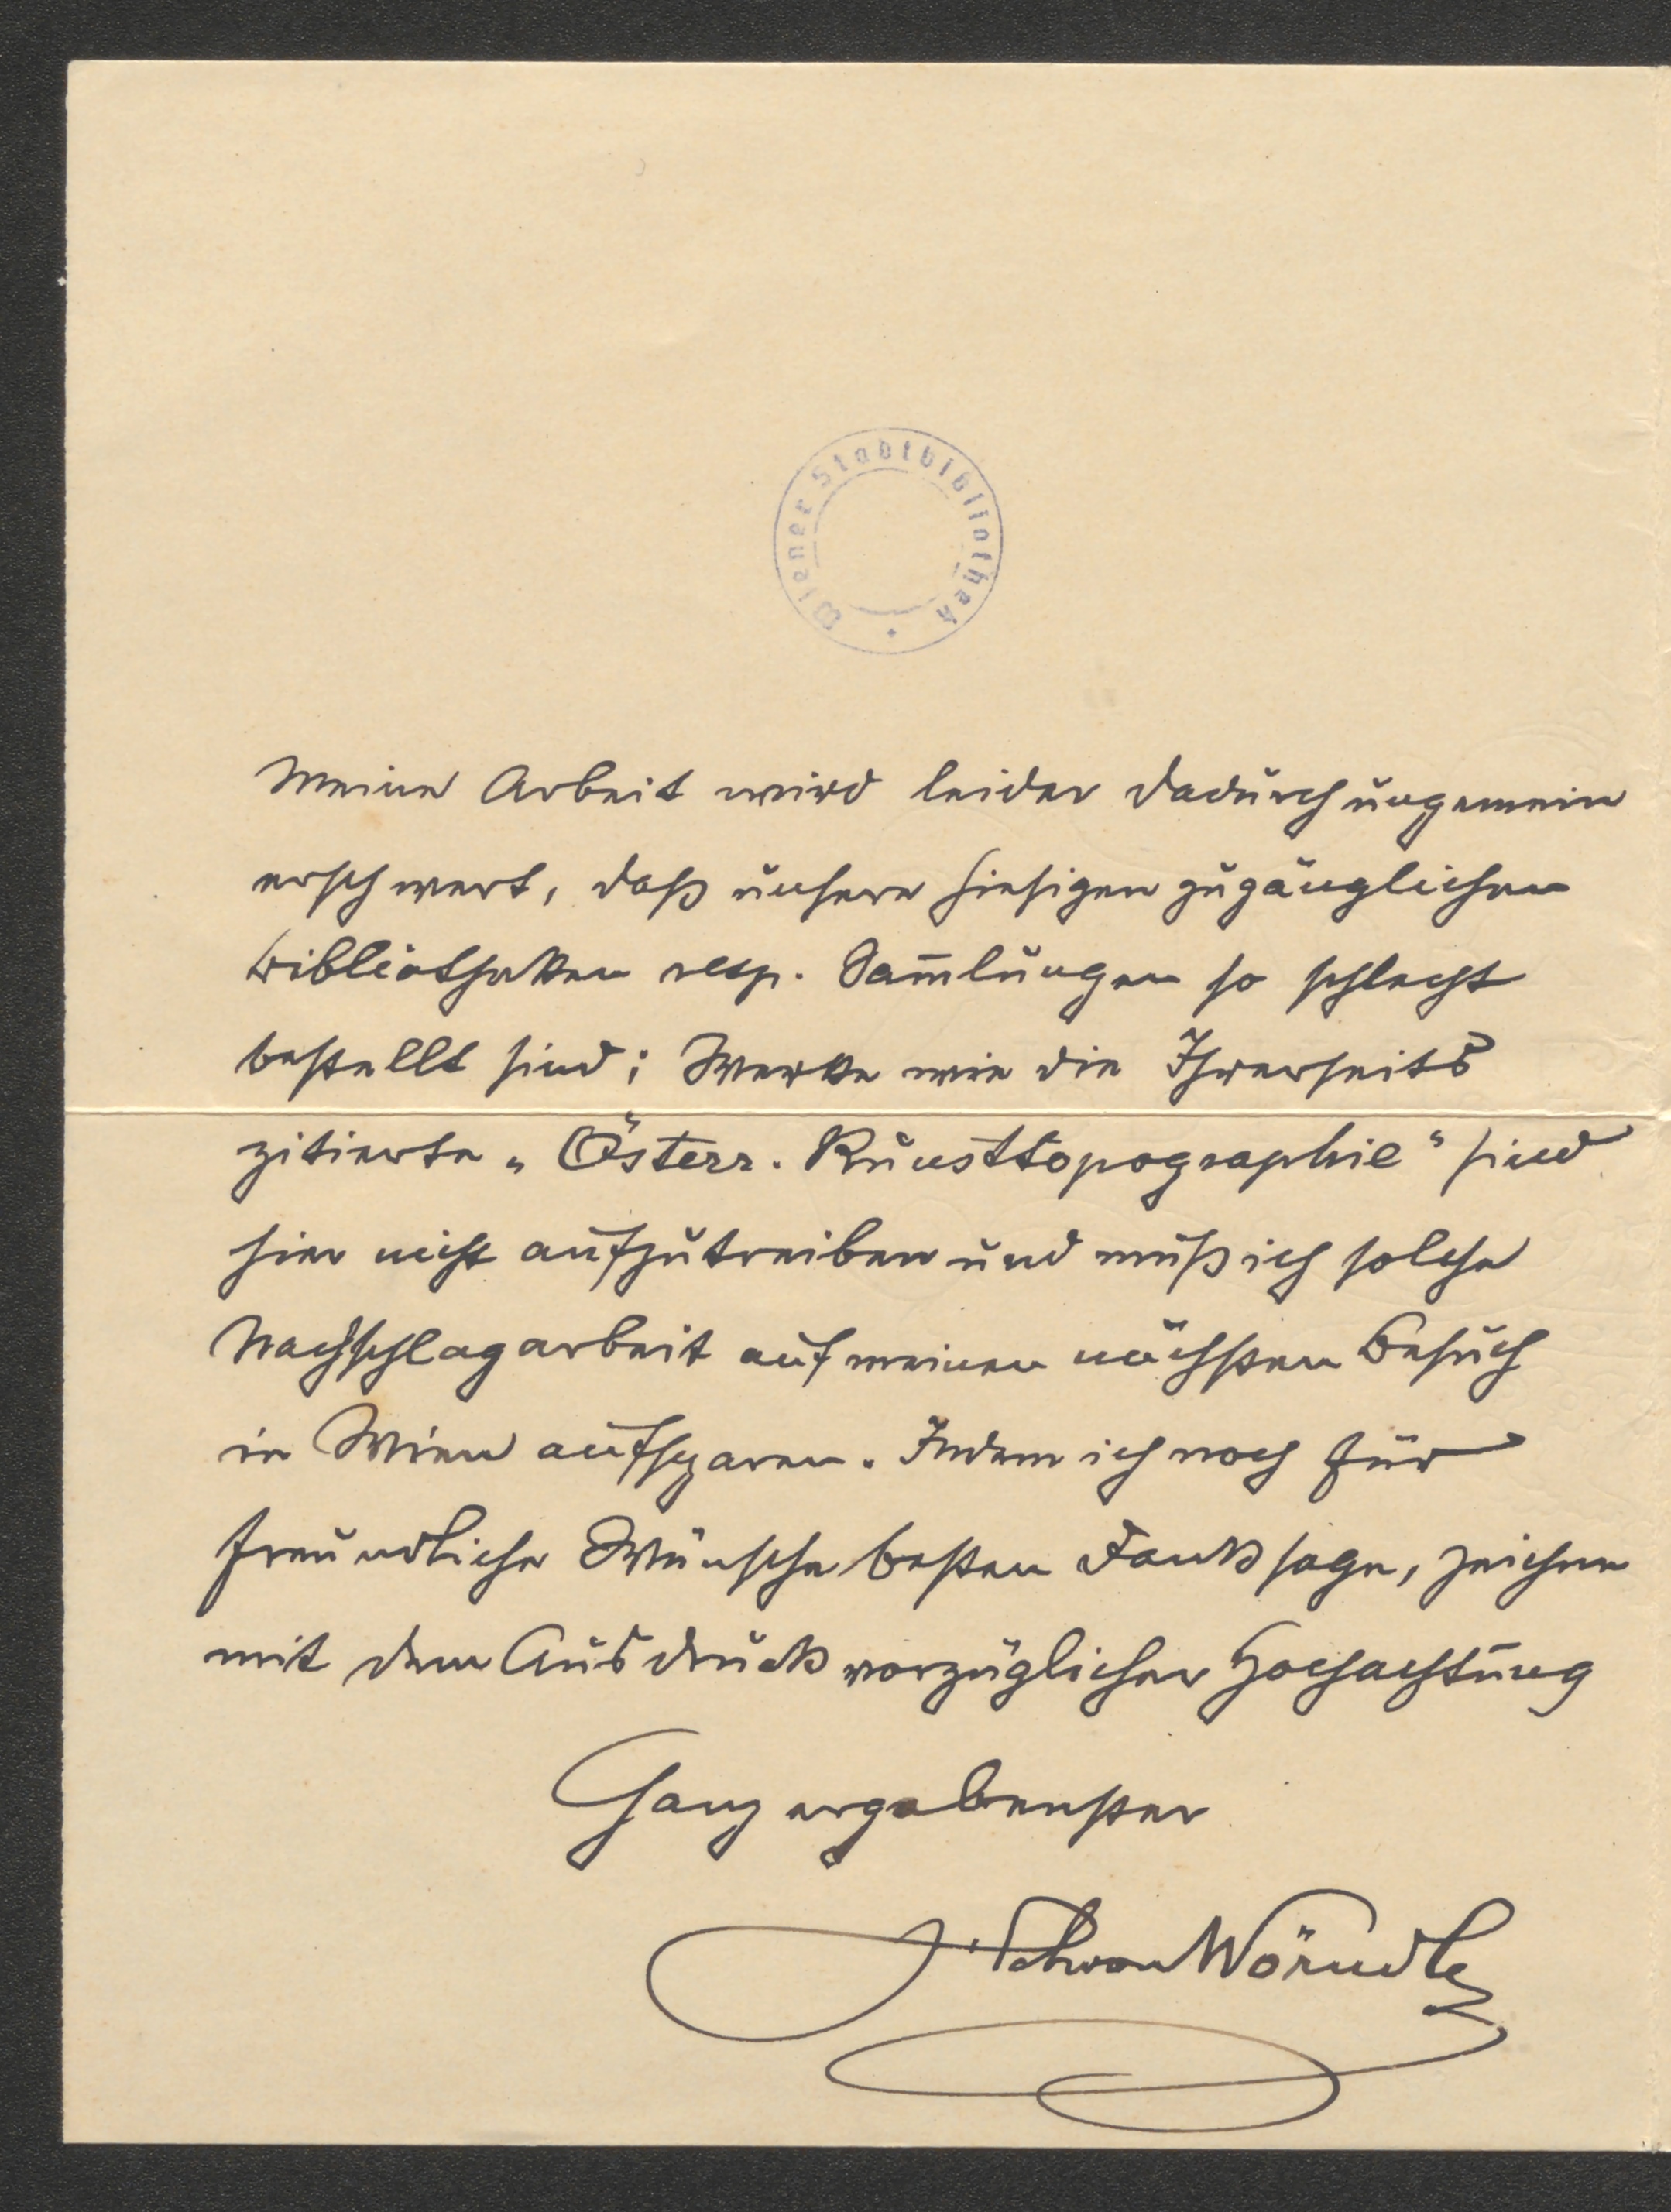 Wiener Stadtbibliothek
Meine Arbeit wird leider dadurch ungemein
erschwert, daß unsere hiesigen zugänglichen
Bibliotheken resp. Sam̅lungen so schlecht
bestellt sind; Werke wie die Ihrerseits
zitierte „Österr. Kunsttopographie" sind
hier nicht aufzutreiben und muß ich solche
Nachschlagarbeit auf meinen nächsten Besuch
in Wien aufsparen. Indem ich noch für
freundliche Wünsche besten Dank sage, zeichne
mit dem Ausdruck vorzüglicher Hochachtung
Ganz ergebenster
von Wörndle